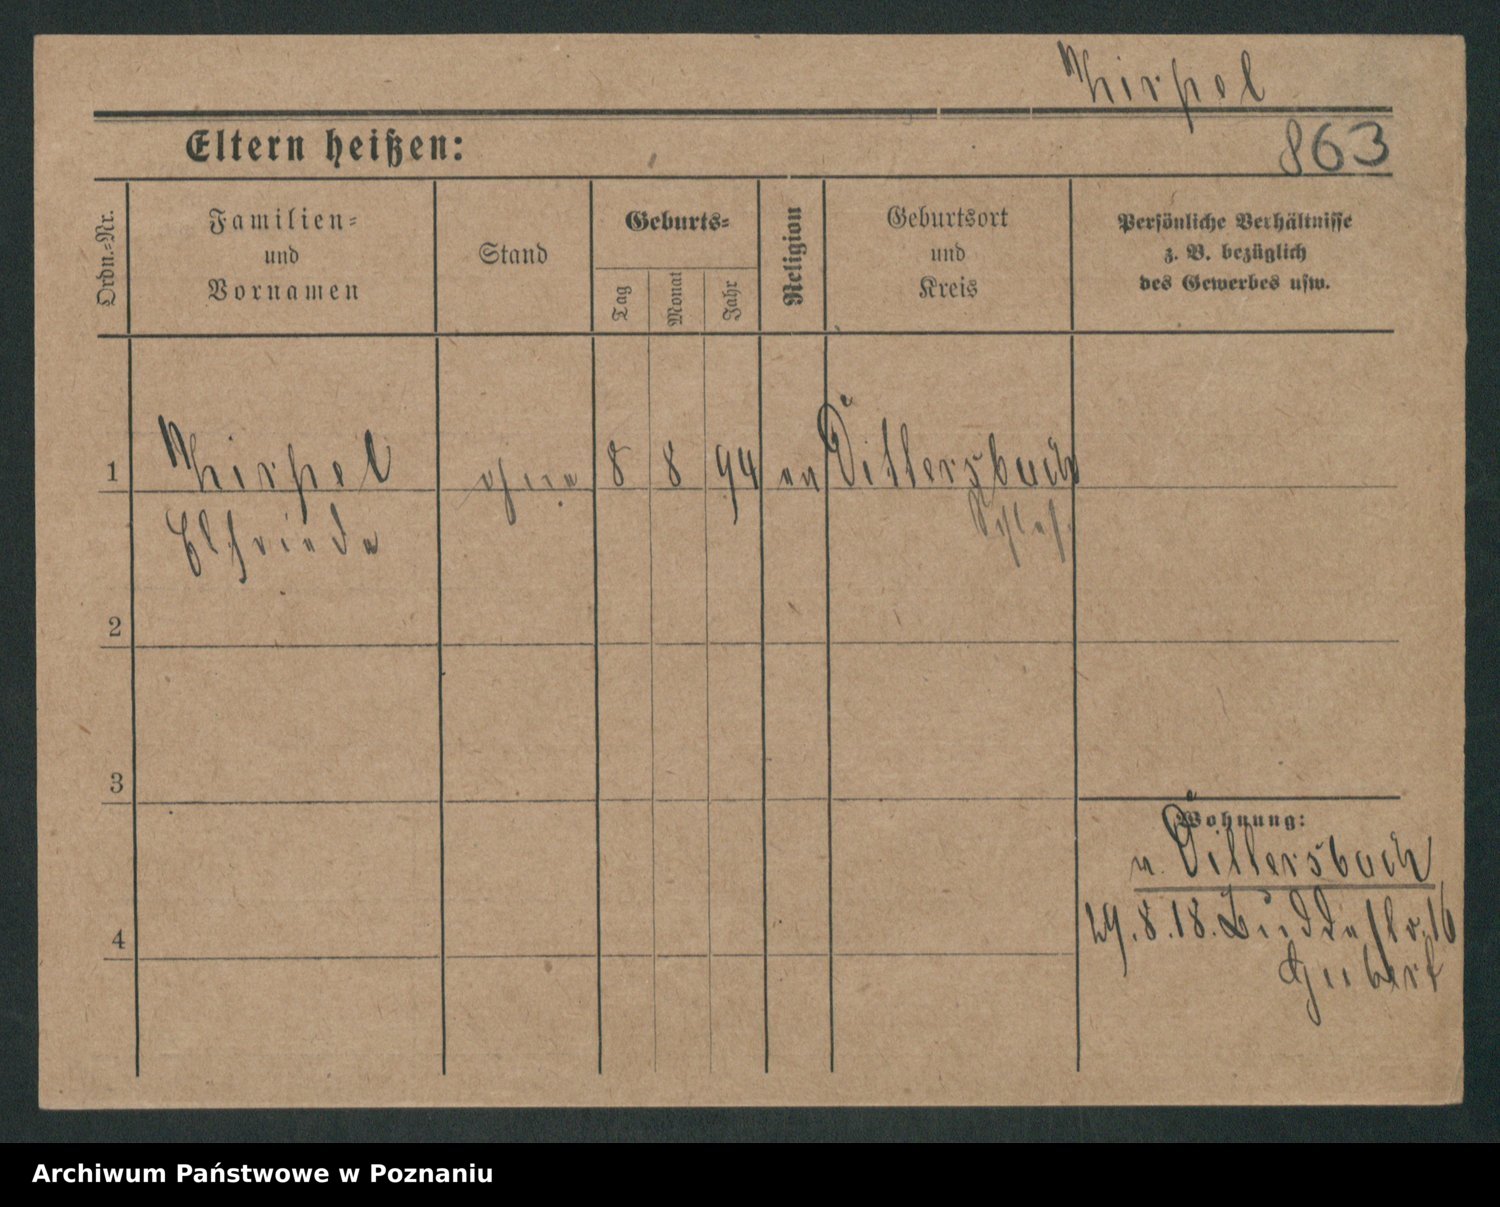 Hirpel
863
Eltern heißen:
Ordn.=Nr.
Familien=
und
Vornamen
Stand
Geburts=
Tag
Monat
Jahr
Religion
Geburtsort
und
Kreis
Persönliche Verhältnisse
z. B. bezüglich
des Gewerbes usw.
1 Hirpel ohne 8 8 94 ev Dittersbach
Elfriede Schles.
2
3
Wohnung:
v. Dittersbach
4
29.8.18. Buddestr. 16
Archiwum Państwowe w Poznaniu